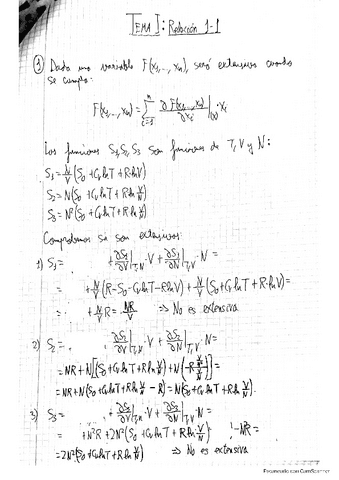 TEMA I: Redacción 1-1
① Dada una variable F(x₁,...,xₙ), será extensiva cuando
se cumpla:
F(x₁,...,xₙ) = Σᵢ₌₁ⁿ ∂F(x₁,...,xₙ)/∂xᵢ · xᵢ
Las funciones S₁, S₂, S₃ son funciones de T, V y N:
S₁ = N/V (S₀ + Cᵥ ln T + R ln V)
S₂ = N(S₀ + Cᵥ ln T + R ln V/N)
S₃ = N²(S₀ + Cᵥ ln T + R ln V/N)
Comprobemos si son extensivas:
1) S₁ = + ∂S₁/∂V|T,N · V + ∂S₁/∂N|T,V · N =
= + N/V (R - S₀ - Cᵥ ln T - R ln V) + N/V (S₀ + Cᵥ ln T + R ln V) =
= + N/V R = NR/V ⇒ No es extensiva
2) S₂ = + ∂S₂/∂V|T,N · V + ∂S₂/∂N|T,V · N =
= NR + N[(S₀ + Cᵥ ln T + R ln V/N) + N(-R )] =
= NR + N(S₀ + Cᵥ ln T + R ln V/N - R) = N(S₀ + Cᵥ ln T + R ln V/N)
3) S₃ = + ∂S₃/∂V|T,N · V + ∂S₃/∂N|T,V · N =
= + N²R + 2N²(S₀ + Cᵥ ln T + R ln V/N) - NR =
= 2N²(S₀ + Cᵥ ln T + R ln V/N) ⇒ No es extensiva
Escaneado con CamScanner